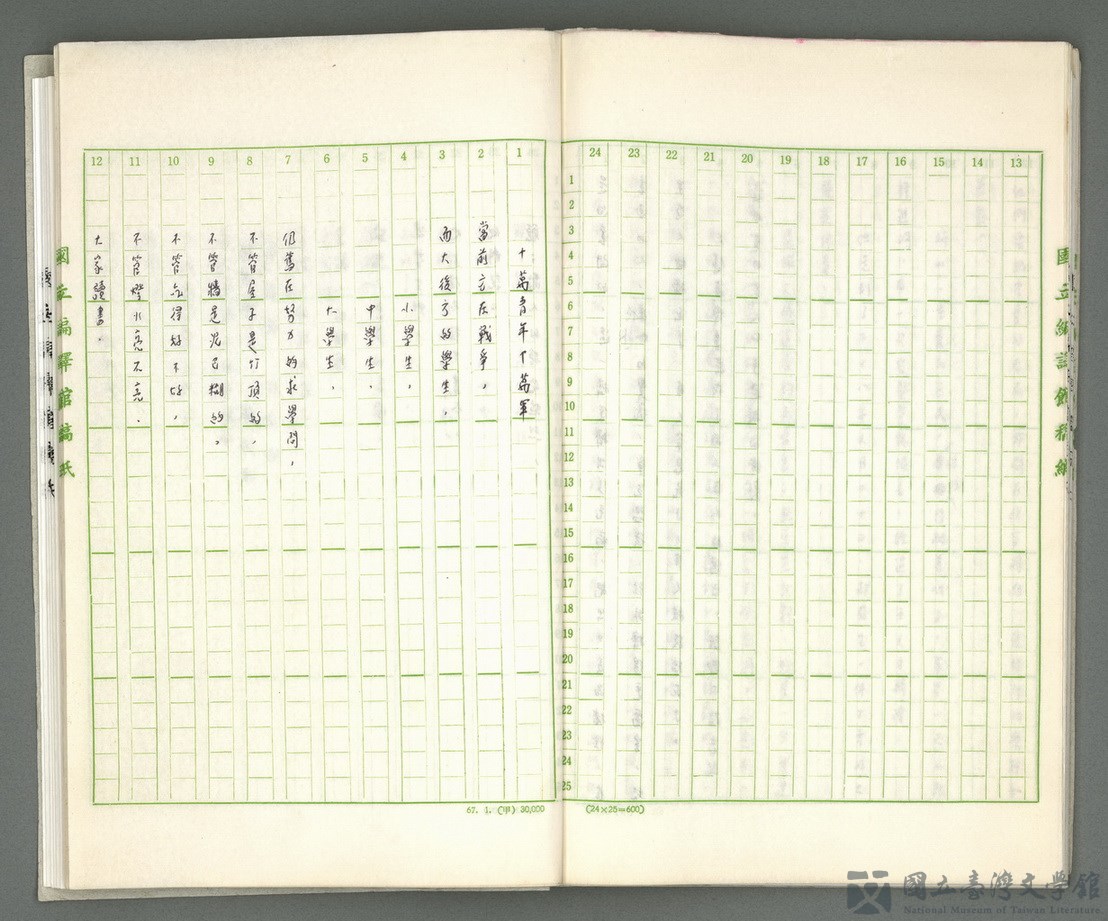 十萬青年十萬軍
當前方在戰爭，
而大後方的學生，
小學生，
中學生，
大學生，
仍舊在努力的求學問，
不管屋子是竹頂的，
不管牆是泥巴糊的，
不管吃得好不好，
不管燈火亮不亮，
大家讀書，
13
14
15
16
17
18
19
20
21
22
23
24
1
2
3
4
5
6
7
8
9
10
11
12
1
2
3
4
5
6
7
8
9
10
11
12
13
14
15
16
17
18
19
20
21
22
23
24
25
國立編譯館稿紙
國立編譯館稿紙
67. 1. (甲) 30,000
(24×25=600)
國立臺灣文學館
National Museum of Taiwan Literature